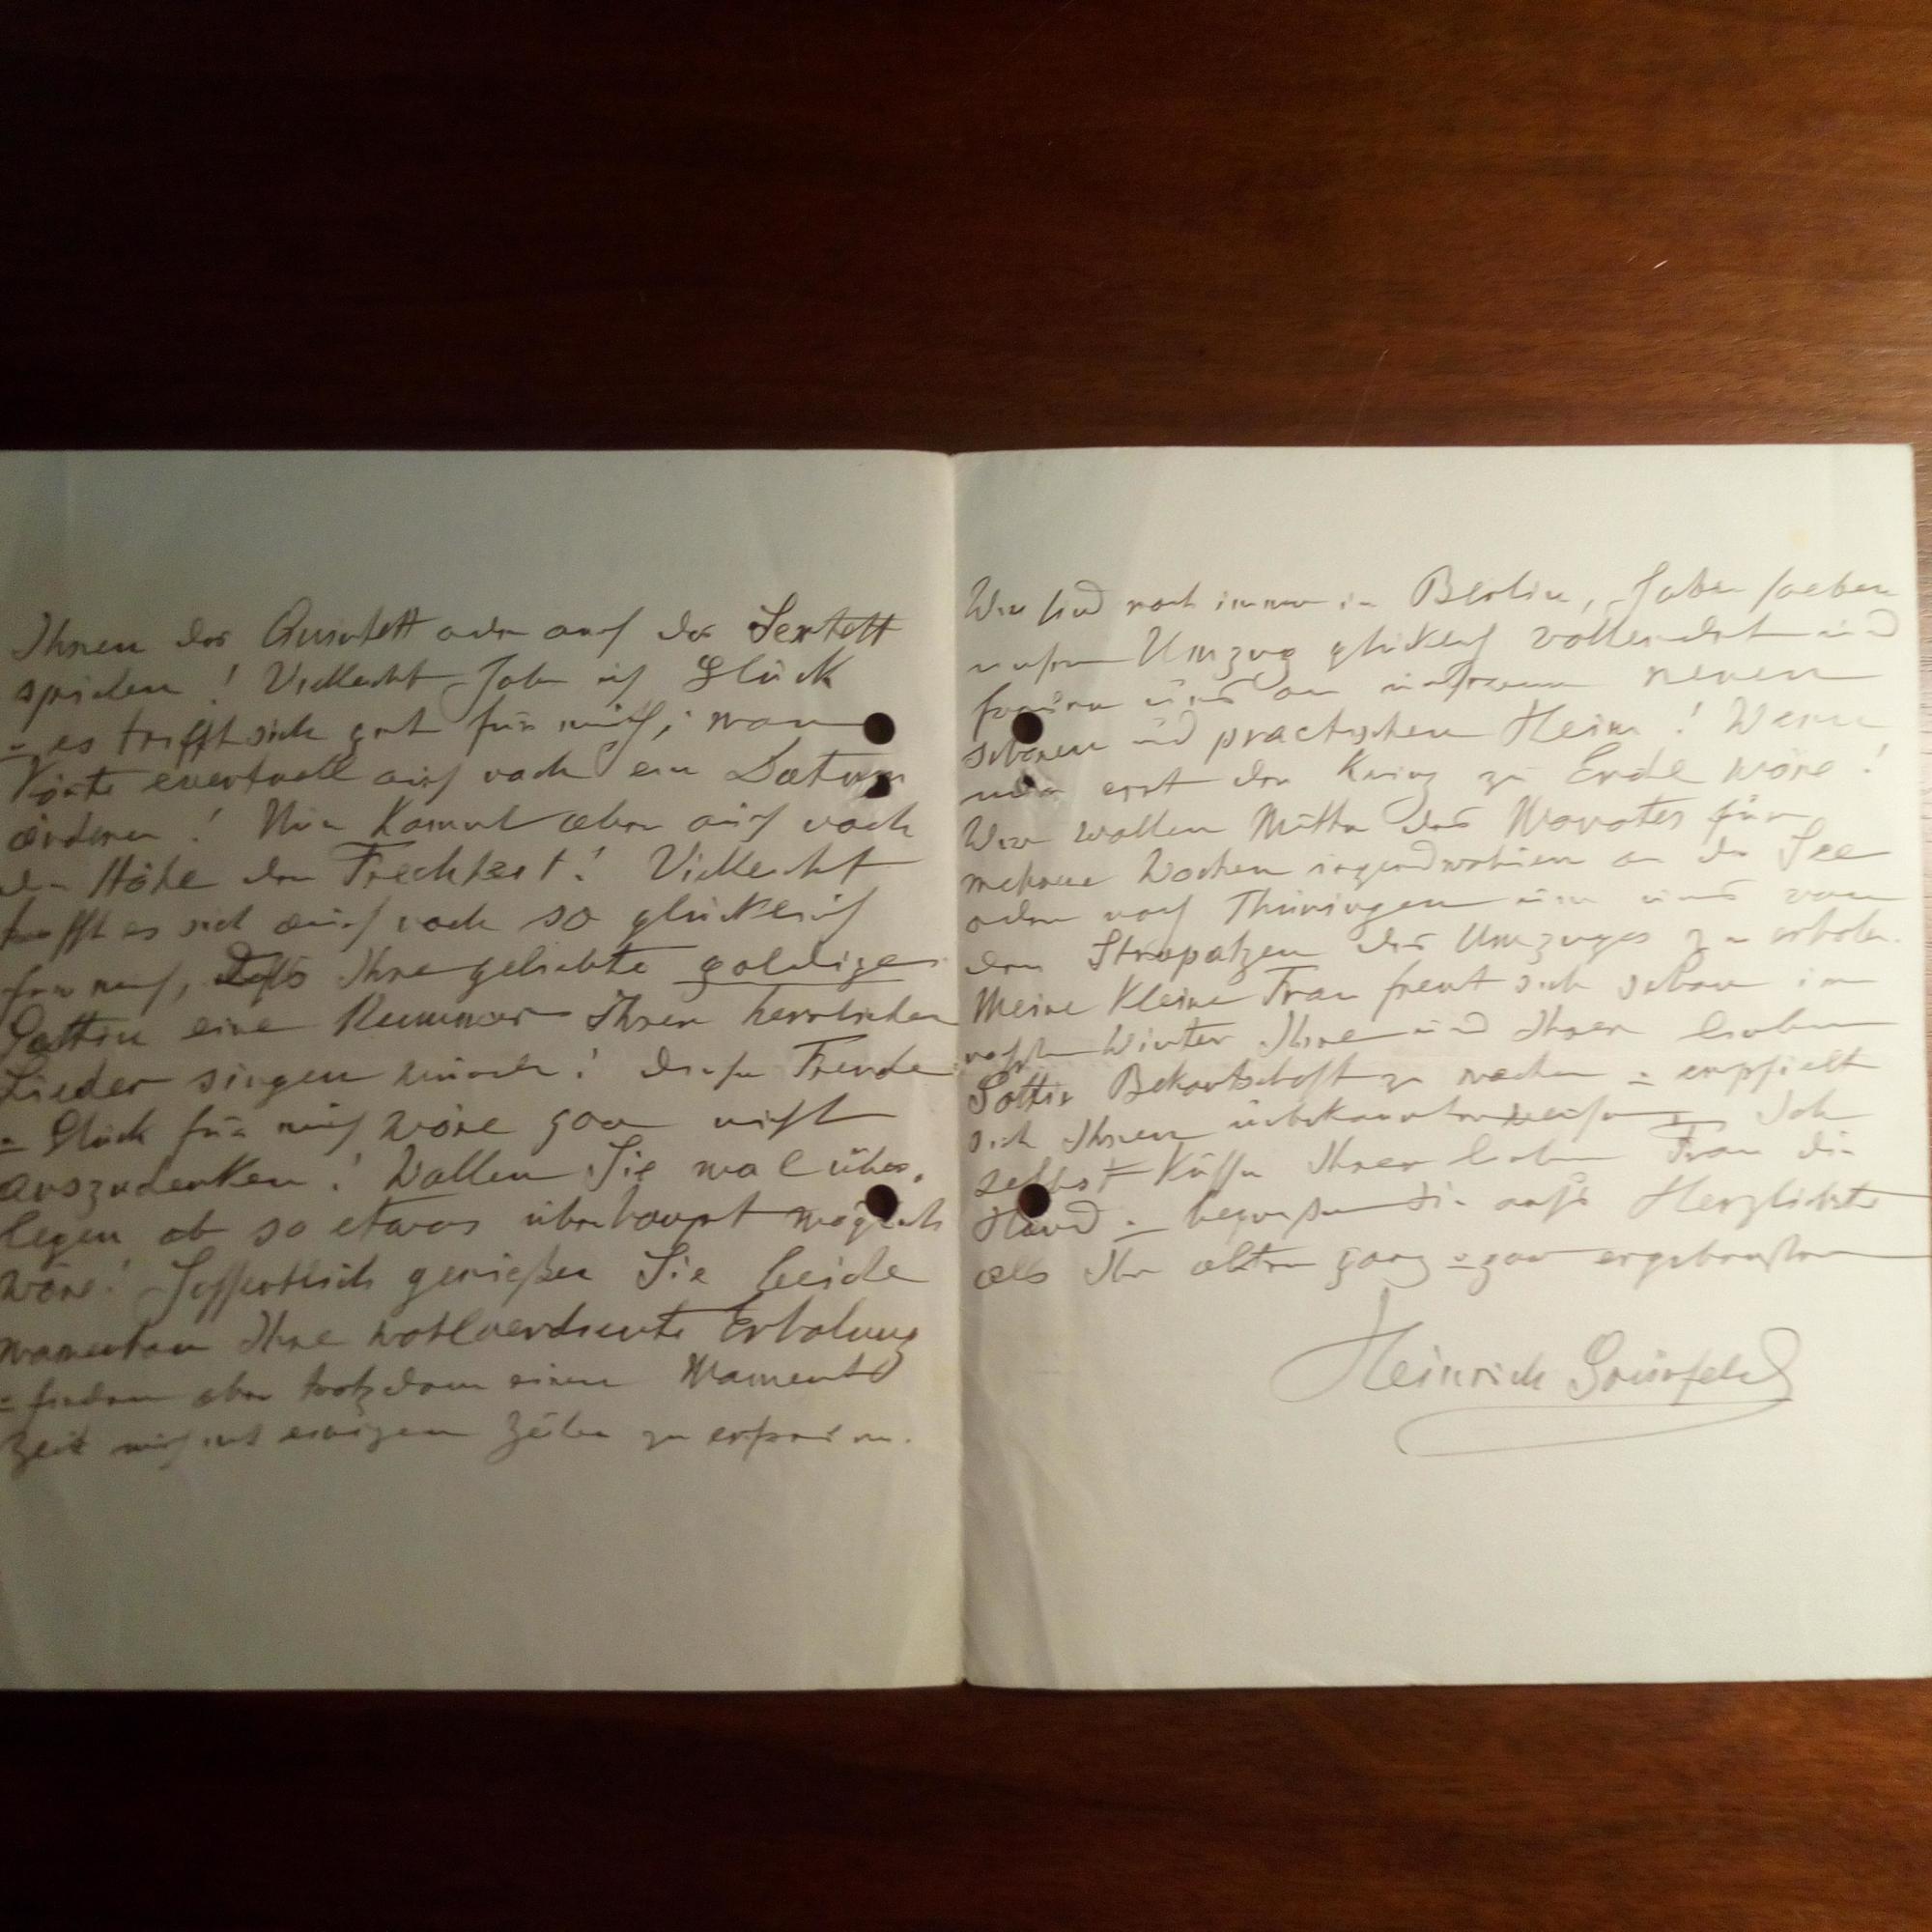 Ihnen das Quintett oder auch das Sextett
spielen! Vielleicht habe ich Glück
= es trifft sich gut für mich; man
könte eventuell auch noch ein Datum
ändern! Nun kommt aber auch noch
die Höhe der Frechheit! Vielleicht
trifft es sich auch noch so glücklich
für mich, daß Ihre geliebte goldige
Gattin eine Nummer Ihrer herrlichen
Lieder singen würde! Diese Freude
= Glück für mich wäre gar nicht
auszudenken! Wollen Sie mal über,
legen ob so etwas überhaupt möglich
wäre! Hoffentlich genießen Sie beide
momentan Ihre wohlverdiente Erholung
= finden aber trotzdem einen Moment
Zeit mich mit einigen Zeilen zu erfreuen.
Wir sind noch immer in Berlin, haben soeben
unsern Umzug glücklich vollendet und
freuen uns an unserem neuen
schönen und practischen Heim! Wenn
nur erst der Krieg zu Ende wäre!
Wir wollen Mitte des Monates für
mehrere Wochen irgendwohin an die See
oder nach Thüringen um uns von
den Strapatzen des Umzuges zu erholen.
Meine kleine Frau freut sich schon im
nächsten Winter Ihre und Ihrer lieben
Gattin Bekantschaft zu machen = empfielt
sich Ihnen unbekannterweise. Ich
selbst küsse Ihrer lieben Frau die
Hand = begrüße Sie aufs Herzlichste
als Ihr alter ganz = gar ergebenster
Heinrich Grünfeld